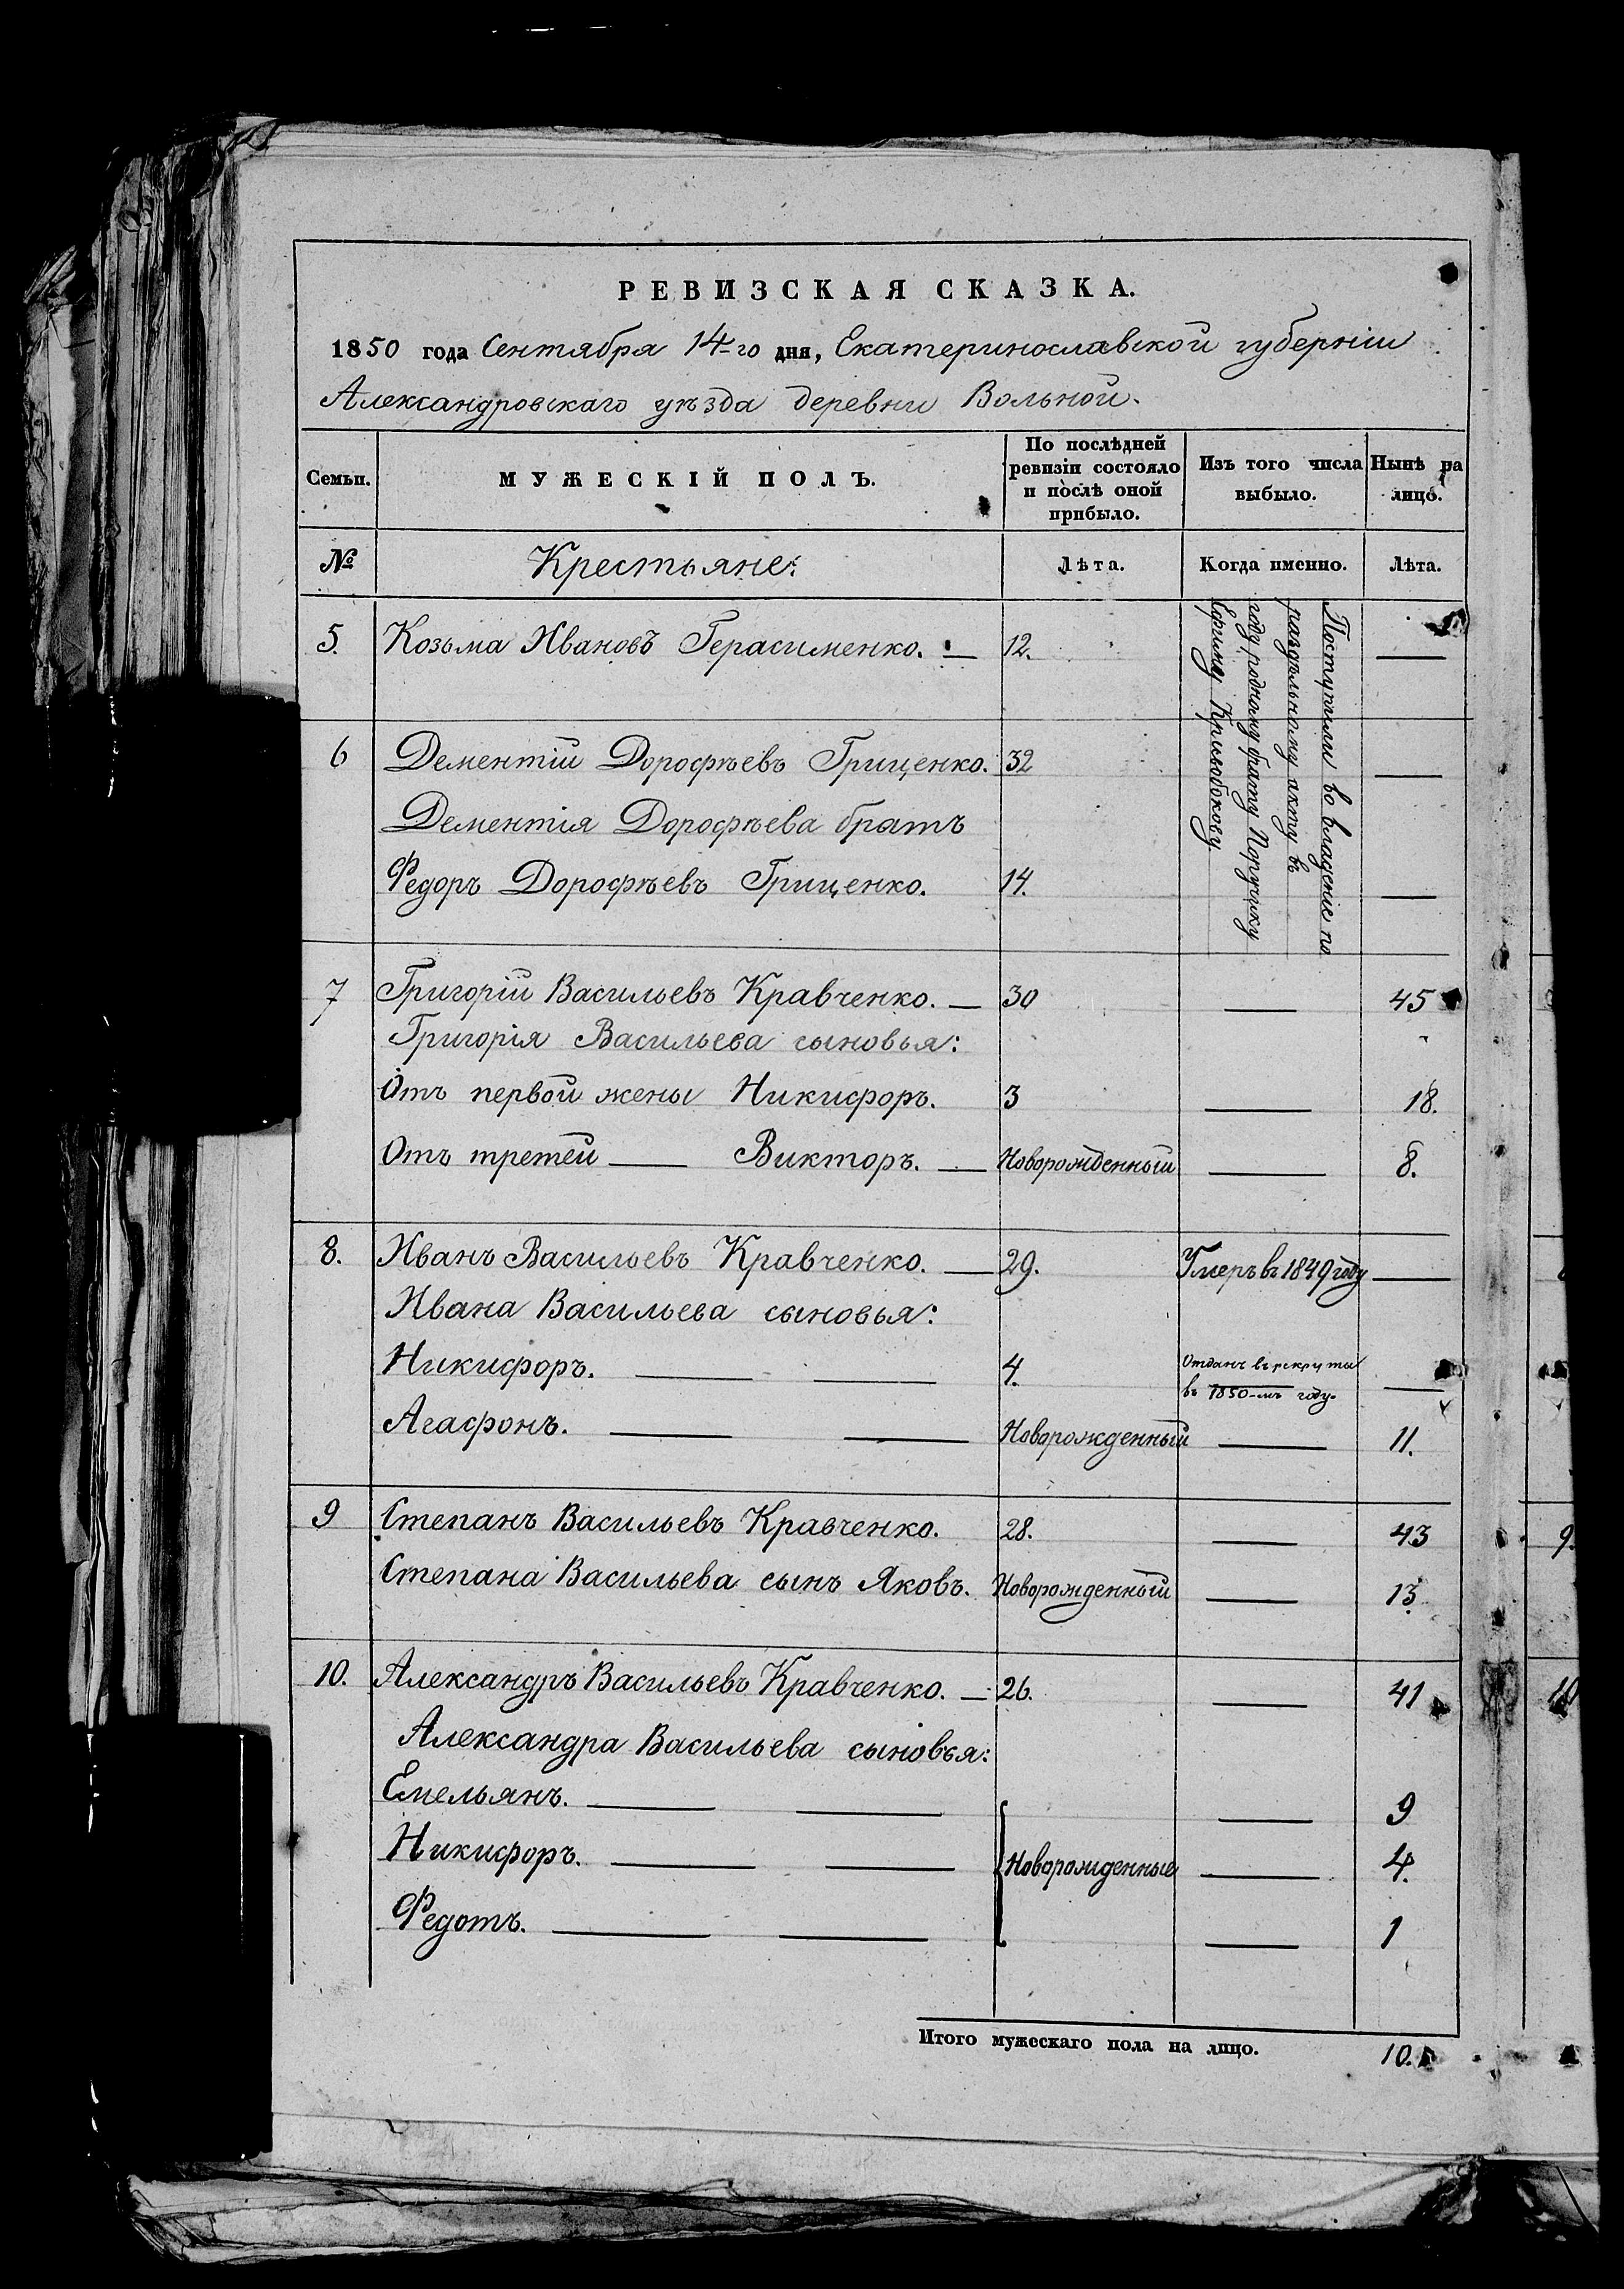 РЕВИЗСКАЯ СКАЗКА.
1850 года Сентября 14-го дня, Екатеринославской губерніи
Александровскаго уѣзда деревни Вольной.
Семьи.
МУЖЕСКІЙ ПОЛЪ.
По послѣдней
ревизіи состояло
и послѣ оной
прибыло.
Изъ того числа
выбыло.
Нынѣ на
лицо.
№
Крестьяне:
Лѣта.
Когда именно.
Лѣта.
5. Козьма Ивановъ Герасименко. — 12. —
Поступили во владеніе по
раздѣльному акту въ
году, родному брату Поручику
Ефиму Кривобокову
6 Дементій Дорофѣевъ Гриценко. 32 —
Дементія Дорофѣева братъ
Федоръ Дорофѣевъ Гриценко. 14. —
7 Григорій Васильевъ Кравченко. — 30 — 45
Григорія Васильева сыновья:
Отъ первой жены Никифоръ. 3 — 18.
Отъ третей — Викторъ. — Новорожденный — 8.
8. Иванъ Васильевъ Кравченко. — 29. Умеръ въ 1849 году —
Ивана Васильева сыновья:
Никифоръ. — — 4. Отданъ въ рекруты
въ 1850-мъ году. —
Агафонъ. — — Новорожденный — 11.
9 Степанъ Васильевъ Кравченко. 28. — 43
Степана Васильева сынъ Яковъ. Новорожденный — 13.
10. Александръ Васильевъ Кравченко. — 26. — 41
Александра Васильева сыновья:
Емельянъ. — — — 9
Никифоръ. — — Новорожденные — 4.
Федотъ. — — — 1
Итого мужескаго пола на лицо. 10.
9.
10